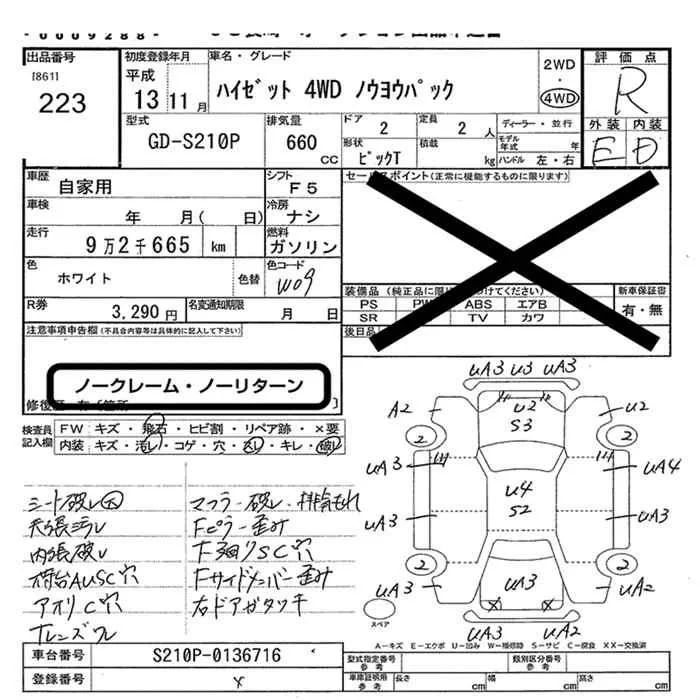 0009288
出品番号
[861]
223
初度登録年月
平成
13 11 月
車名・グレード
ハイゼット 4WD ノウヨウパック
2WD
・
4WD
評価点
R
外装 内装
E D
型式
GD-S210P
排気量
660 CC
ドア
2
定員
2 人
ディーラー・並行
モデル年式 年
形状
ピックT
積載
kg
ハンドル 左・右
車歴
自家用
シフト
F5
セールスポイント(正常に機能するものに限ります)
車検
年 月( 日)
冷房
ナシ
走行
9万2千665 km
燃料
ガソリン
色
ホワイト
色替
色コード
W09
R券
3,290円
名変通知期限
月 日
装備品
PS PW ABS エアB
SR TV カワ
新車保証書
有・無
後日品
注意事項申告欄(不具合内容等は具体的に記入して下さい)
ノークレーム・ノーリターン
検査員記入欄
FW キズ・飛石・ヒビ割・リペア跡・×要
内装 キズ・汚レ・コゲ・穴・スレ・キレ・破レ
シート破レ大
天張ヨゴレ
内張破レ
荷台AUSC穴
アオリC穴
Tレンズワレ
マフラー破レ・排気もれ
Fピラー歪み
F廻りSC穴
Fサイドメンバー歪み
右ドアガタツキ
UA3 U3 UA3
A2 U2 U2
S3
2 2
UA3 UA4
U4
S2
UA3 UA3
2 2
UA3 UA3 UA2
X X
UA3 UA2
スペア
A-キズ E-エクボ U-凹み W-補修跡 S-サビ C-腐食 XX-交換済
車台番号
S210P-0136716
登録番号
×
型式指定番号参考
類別区分番号参考
車庫証明用参考
長さ cm
幅 cm
高さ cm